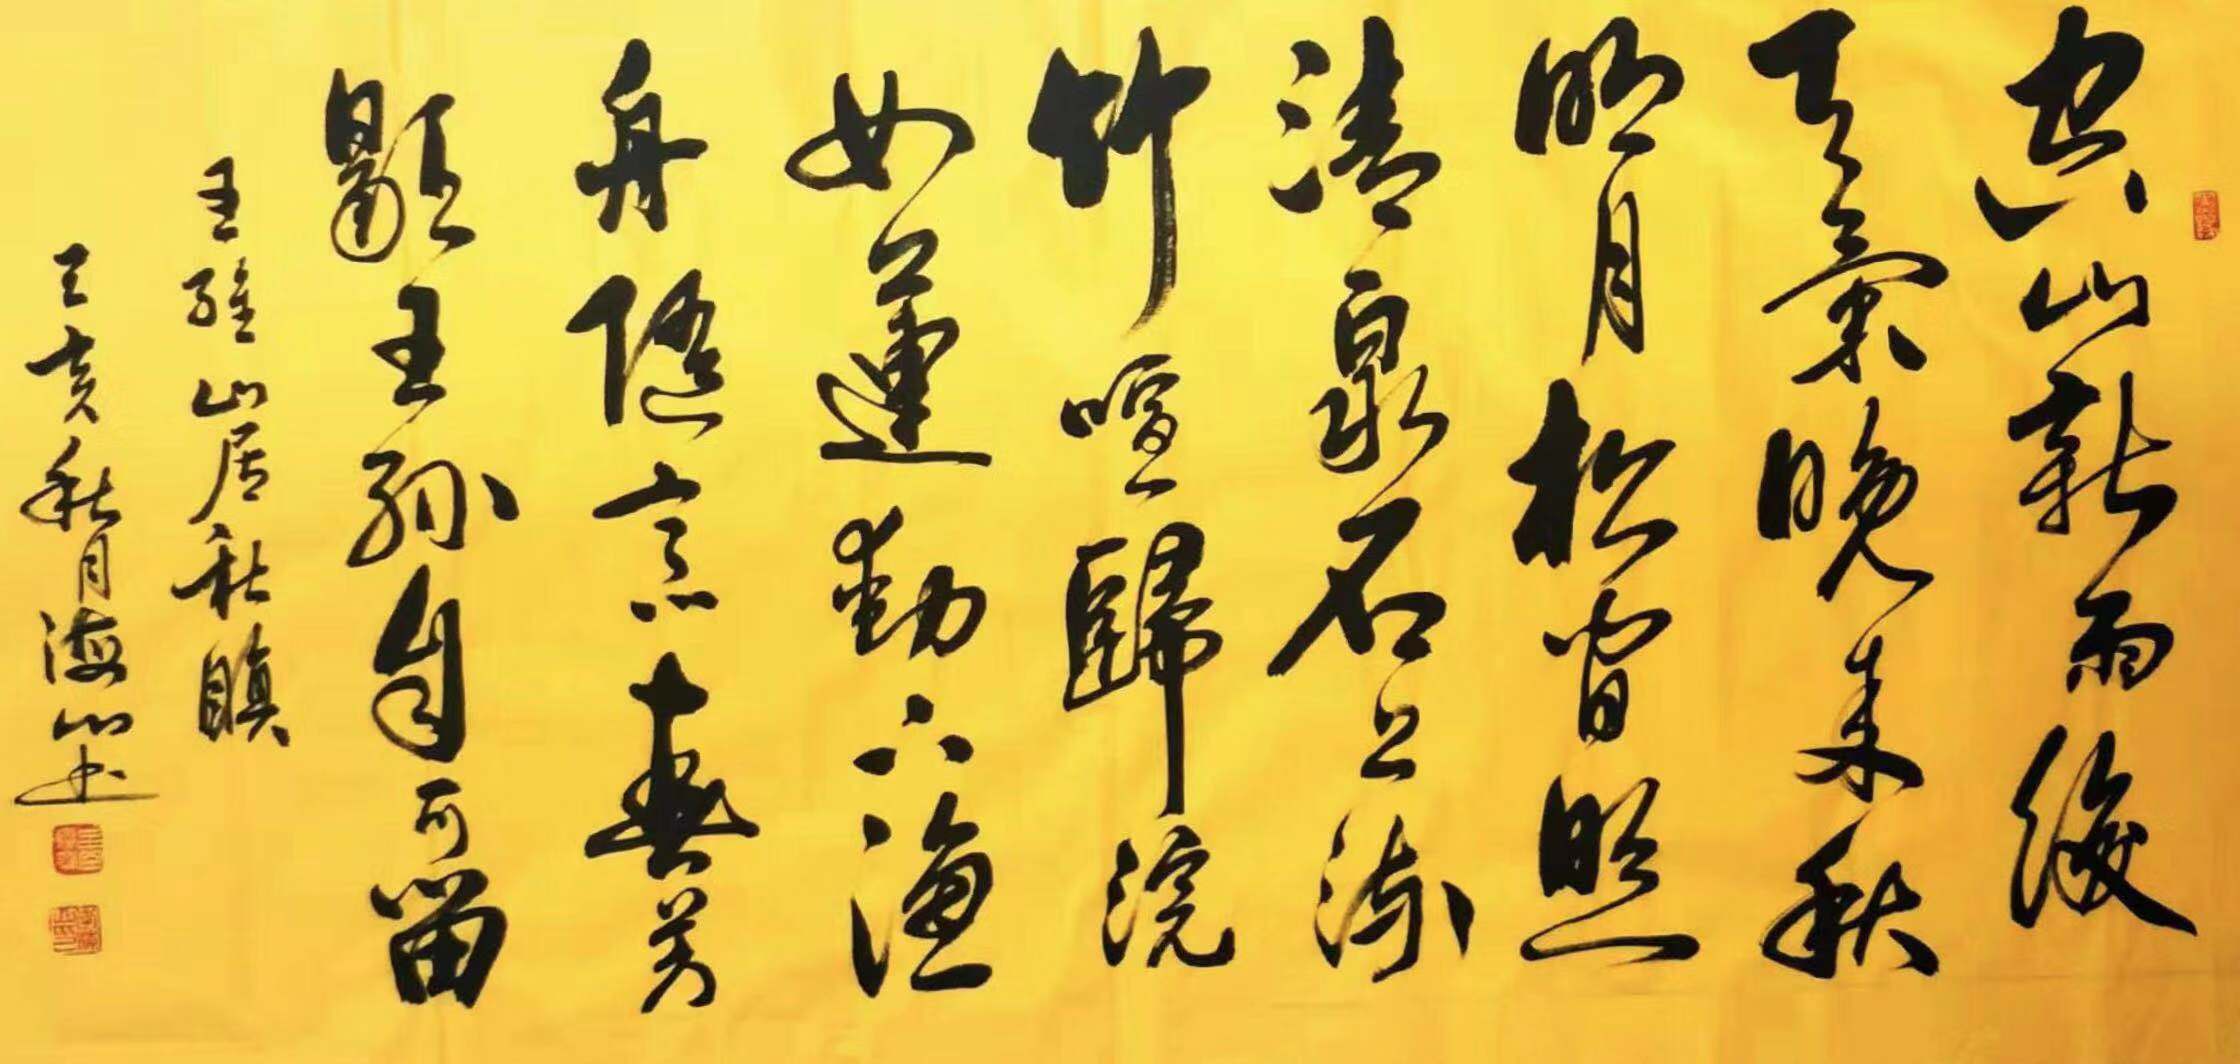 空山新雨後
天氣晚来秋
明月松間照
清泉石上流
竹喧歸浣
女蓮動下漁
舟随意春芳
歇王孫自可留
王維山居秋暝
己亥秋月海山书